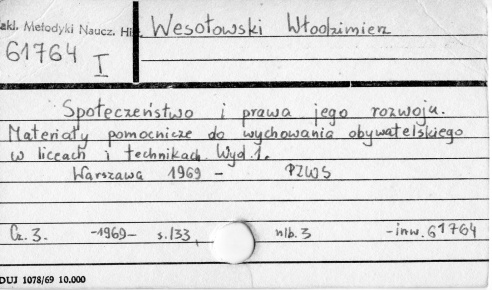 Zakl. Metodyki Naucz. His
61764
I
Wesołowski Włodzimierz
Społeczeństwo i prawa jego rozwoju.
Materiały pomocnicze do wychowania obywatelskiego
w liceach i technikach. Wyd. 1.
Warszawa 1969 - PZWS
Cz. 3. -1969- s. 133, nlb. 3 -inw. 61764
DUJ 1078/69 10.000